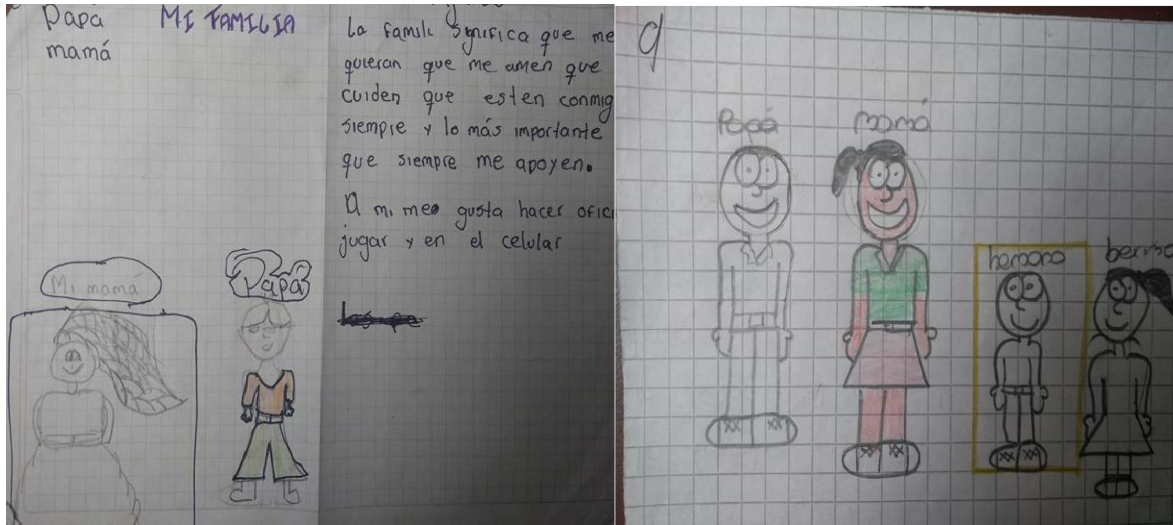 Papa
mamá
MI FAMILIA
Mi mamá
Papá
La Famili Significa que me
quieran que me amen que
cuiden que esten conmig
siempre y lo más importante
que siempre me apoyen.
A mi me gusta hacer ofici
jugar y en el celular
Papá
mamá
hemano